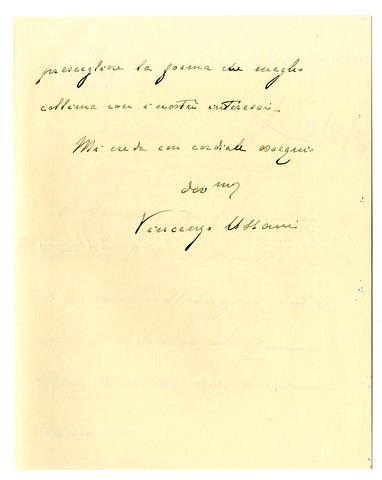 prescegliere la forma che meglio
collima con i nostri interessi.
Mi creda con cordiale ossequio
dev mo
Vincenzo Ussani